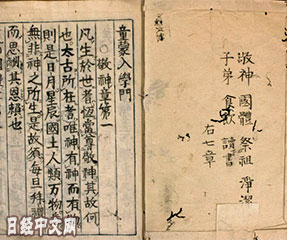 敬神 國體 祭祖 淨潔
子弟 食飲 讀書
右七章
童蒙入學門
○敬神章第一
凡生於世者恆當尊敬神其故何
也太古所在者唯神有神而有
則是日月星辰國土人類万物
無非神之所生是故須每旦拜
而思其恩頼也
日经中文网